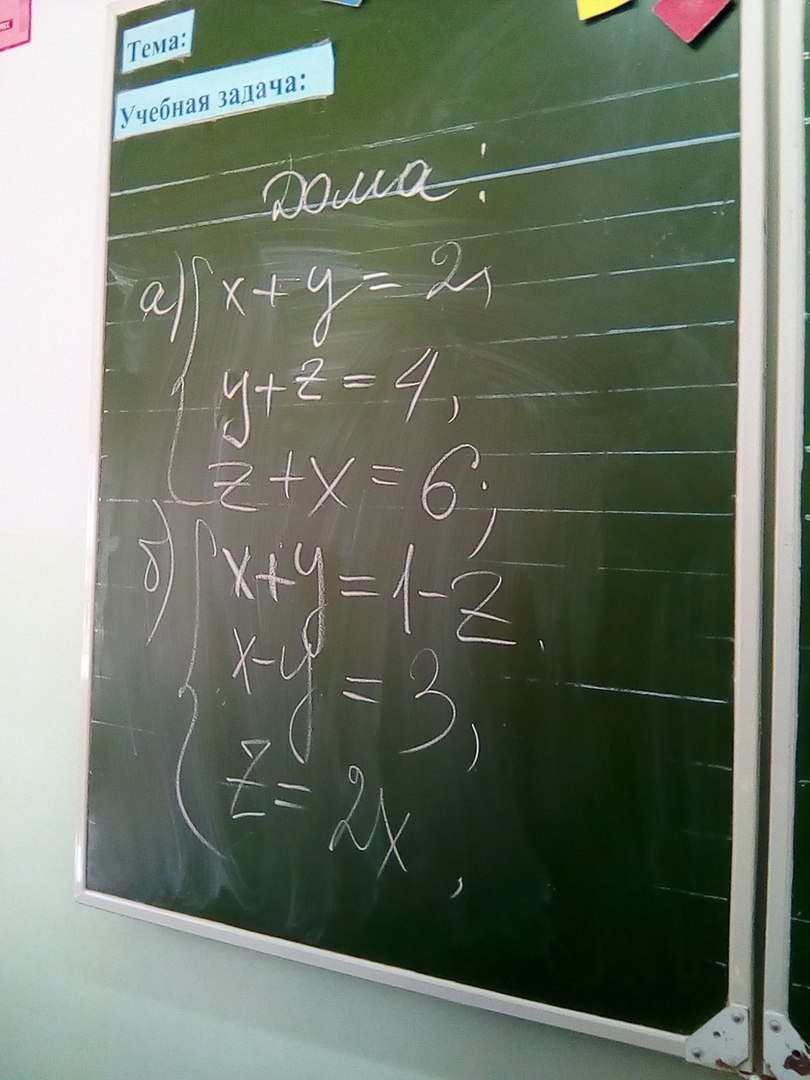 Тема:
Учебная задача:
Дома:
а) { x + y = 2,
y + z = 4,
z + x = 6;
б) { x + y = 1 - z,
x - y = 3,
z = 2x,